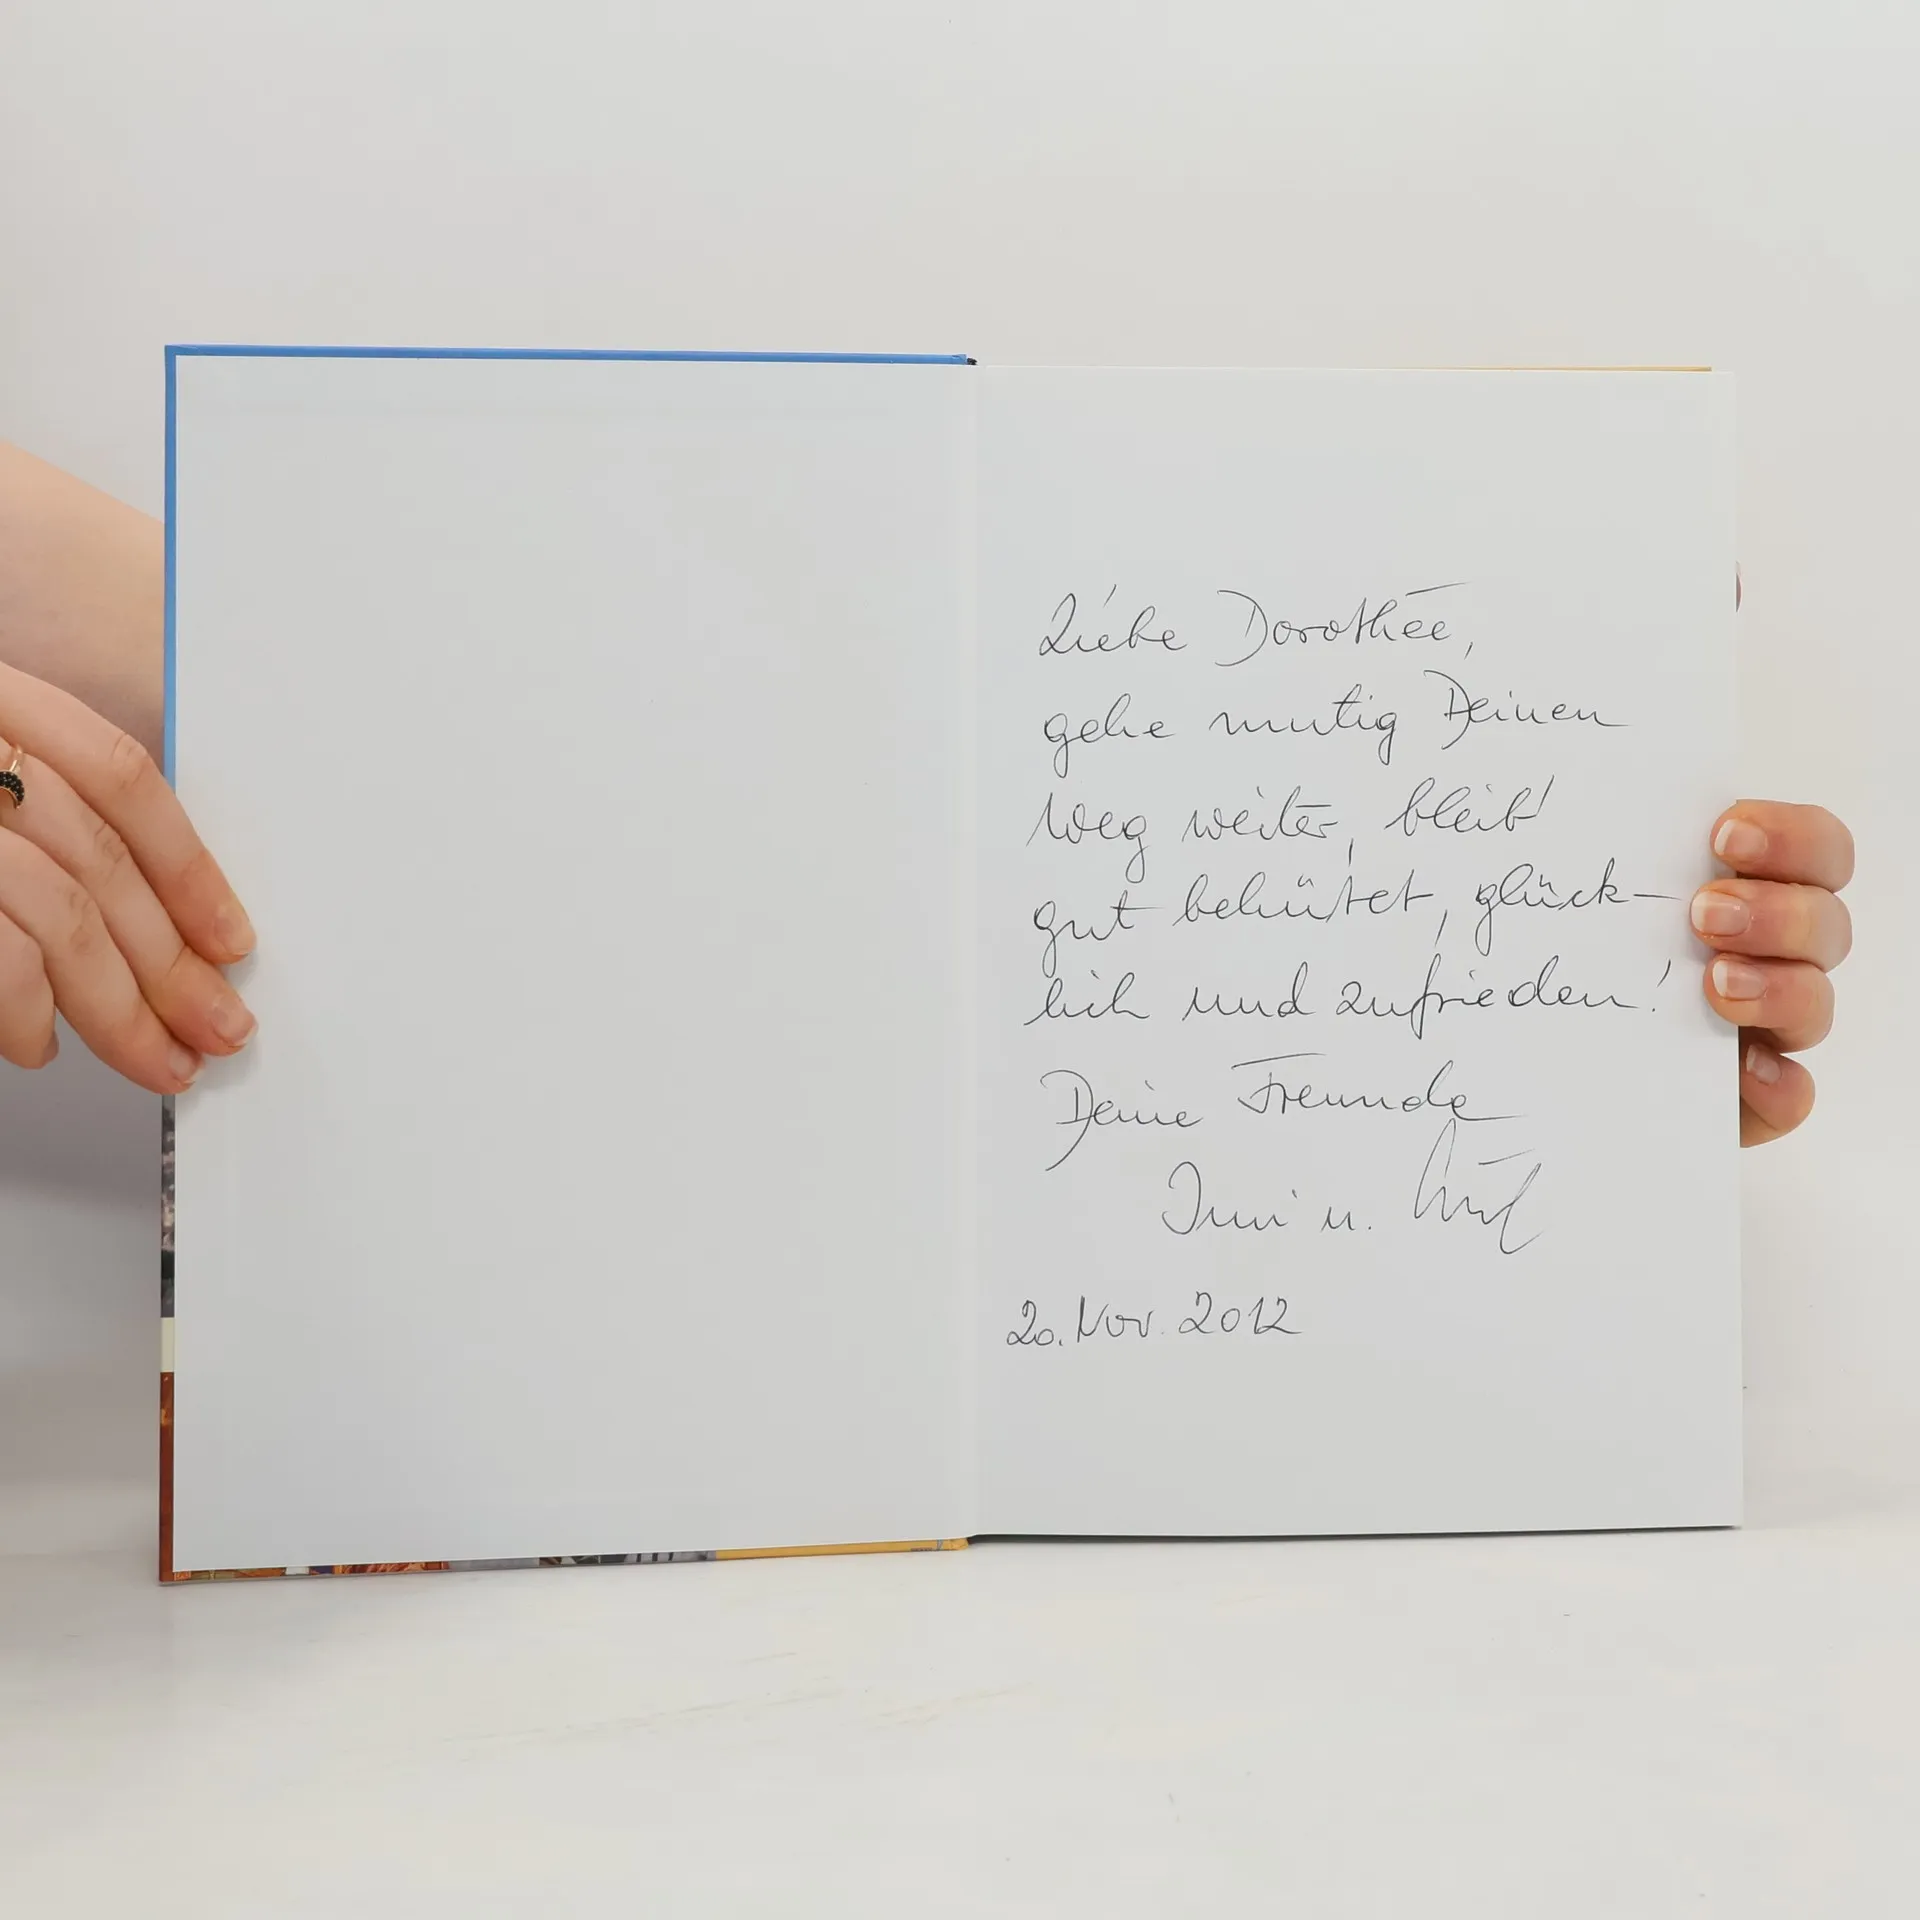 Liebe Dorothée,
gehe mutig Deinen
Weg weiter, bleib'
gut behütet, glück-
lich und zufrieden!
Deine Freunde
u.
20. Nov. 2012